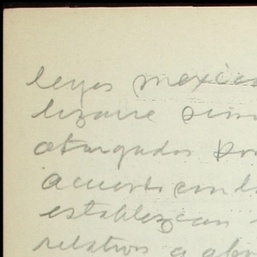 leyes mexica
lizarse
otorgados por
acuerdo con l
establezcan
relativo a